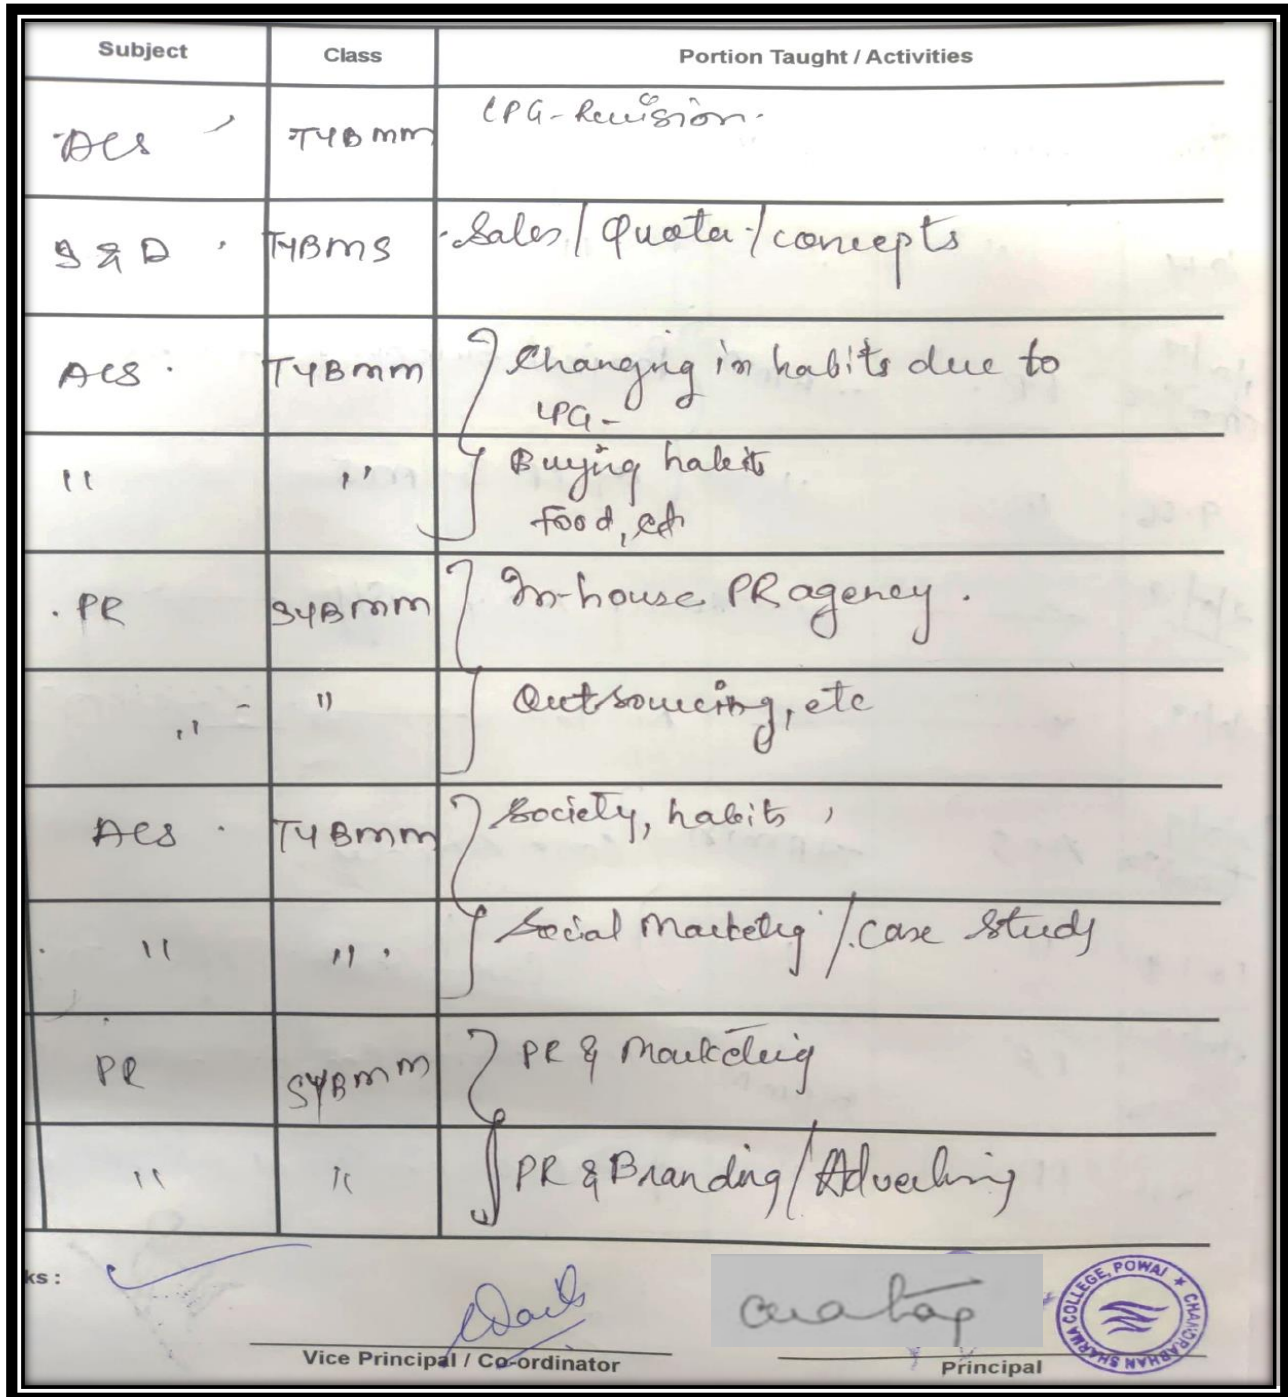 Subject Class Portion Taught / Activities
ACS TYBMM LPG-Revision.
S & D TYBMS Sales / Quota / concepts
ACS TYBMM Changing in habits due to
LPG-
" " Buying habits
Food, etc
PR SYBMM In-house PR agency.
" " Outsourcing, etc
ACS TYBMM Society, habits,
" " Social Marketing / case study
PR SYBMM PR & Marketing
" " PR & Branding / Advertising
ks :
Vice Principal / Co-ordinator
Principal
CHANDRABHAN SHARMA COLLEGE, POWAI